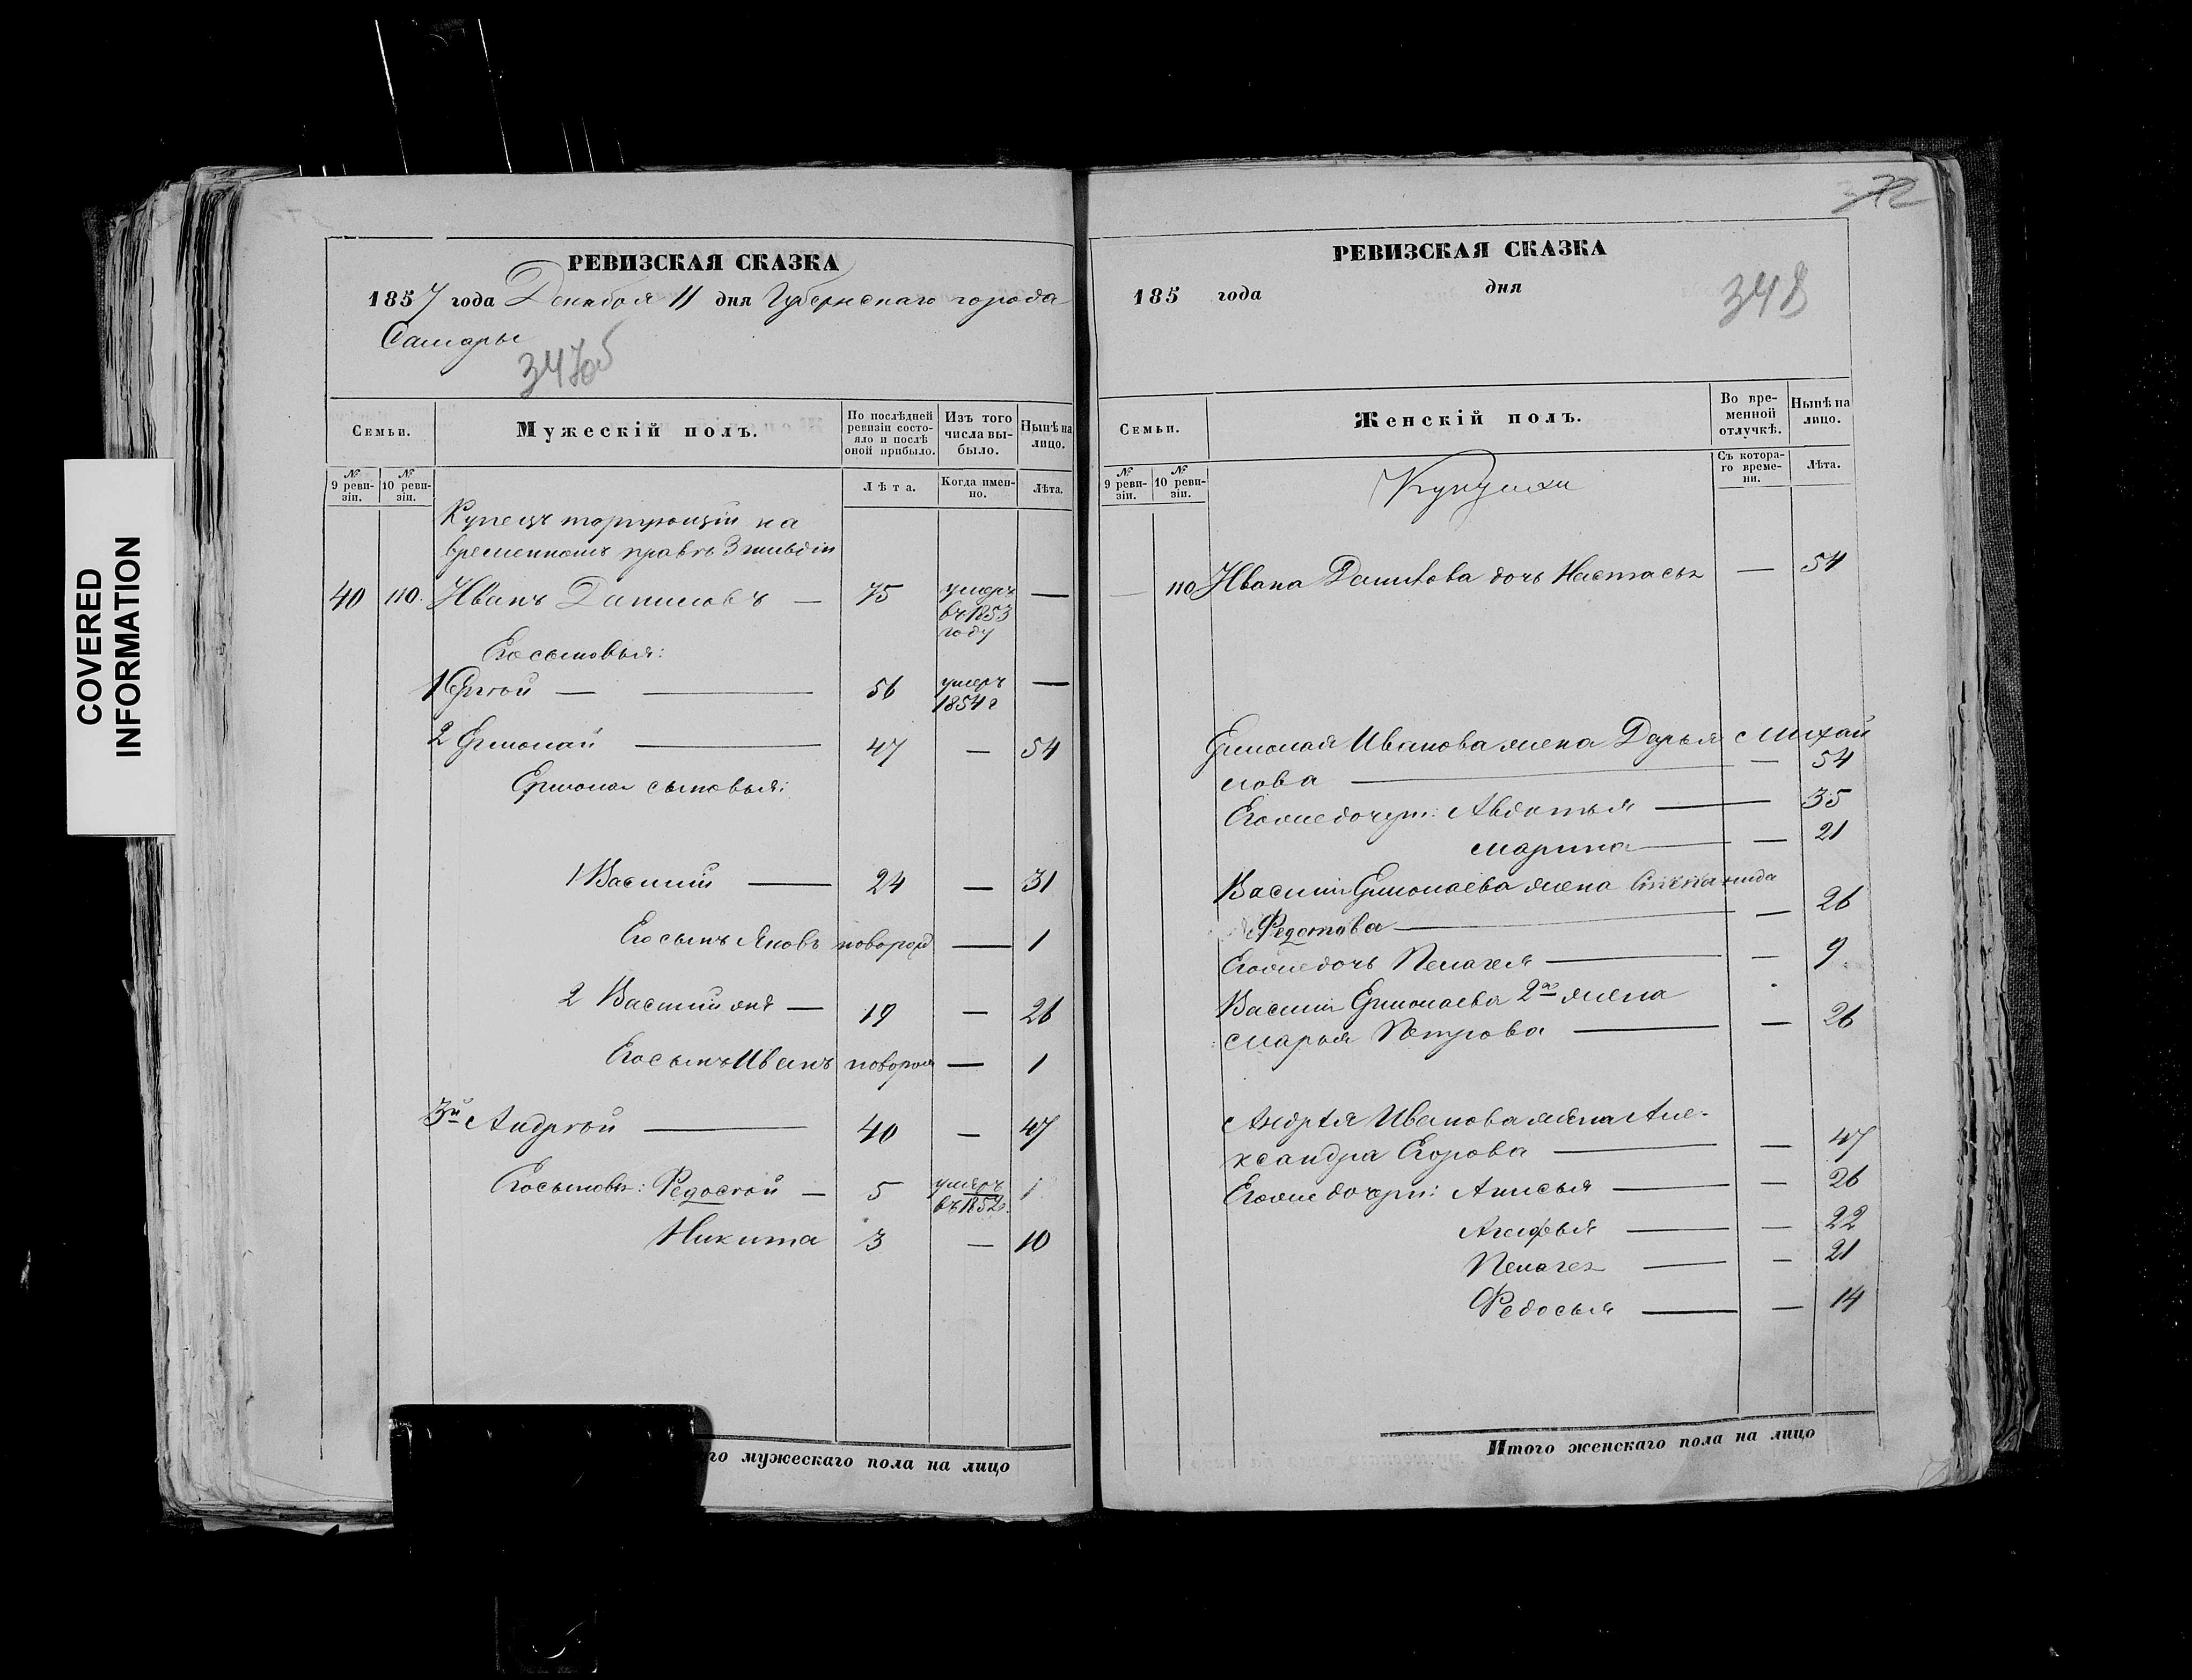 COVERED
INFORMATION
РЕВИЗСКАЯ СКАЗКА
1857 года Декабря 11 дня Губернскаго города
Самары
347об
Семьи.
Мужескій полъ.
По послѣдней ревизіи состояло и послѣ оной прибыло.
Изъ того числа выбыло.
Нынѣ на лицо.
№ 9 ревизіи.
№ 10 ревизіи.
Лѣта.
Когда именно.
Лѣта.
Купецъ торгующій на
временномъ правѣ 3 гильдіи
40 110. Иванъ Даниловъ — 75 умеръ въ 1853 году —
Его сыновья:
1 Сергѣй — — 56 умеръ 1854 г —
2 Ермолай — 47 — 54
Ермолая сыновья:
1 Василий — 24 — 31
Его сынъ Яковъ новорожд — 1
2 Василий же — 19 — 26
Его сынъ Иванъ новорож — 1
3й Андрей — 40 — 47
Его сыновья: Федосѣй — 5 умеръ въ 1852г.
Никита 3 — 10
го мужескаго пола на лицо
372
РЕВИЗСКАЯ СКАЗКА
185 года дня
348
Семьи.
Женскій полъ.
Во временной отлучкѣ.
Нынѣ на лицо.
№ 9 ревизіи.
№ 10 ревизіи.
Съ котораго времени.
Лѣта.
— 110 Ивана Данилова дочь Настасья — 54
Ермолая Иванова жена Дарья Михай
лова — — 54
Его же дочери: Авдотья — 35
Марина — — 21
Василия Ермолаева жена Степанида
Федотова — — 26
Его же дочь Пелагея — — 9
Василия Ермолаева 2го жена
Марья Петрова — — 26
Андрея Иванова жена Але-
ксандра Егорова — — 47
Его же дочери: Анисья — — 26
Агафья — — 22
Пелагея — — 21
Федосья — — 14
Итого женскаго пола на лицо